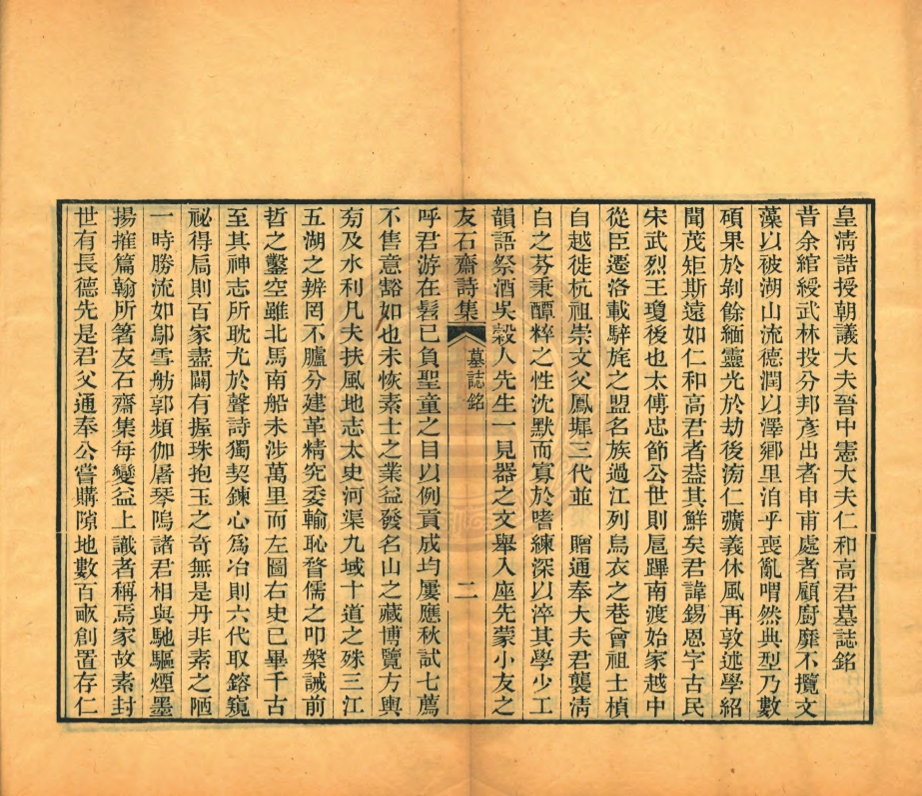 皇淸誥授朝議大夫晉中憲大夫仁和高君墓誌銘
昔余綰綬武林投分邦彥出者申甫處者顧廚靡不攬文
藻以被湖山流德潤以澤鄉里洎乎喪亂喟然典型乃數
碩果於剝餘緬靈光於劫後匢仁彍義休風再敦述學紹
聞茂矩斯遠如仁和高君者葢其鮮矣君諱錫恩字古民
宋武烈王瓊後也太傅忠節公世則扈蹕南渡始家越中
從臣遷洛載騂旄之盟名族過江列烏衣之巷曾祖士楨
自越徙杭祖崇文父鳳墀三代並 贈通奉大夫君襲淸
白之芬秉醰粹之性沈默而寡於嗜練深以淬其學少工
韻語祭酒吳榖人先生一見器之文舉入座先蒙小友之
友石齋詩集 墓誌銘 二
呼君游在髫已負聖童之目以例貢成均屢應秋試七薦
不售意豁如也未恢素士之業益發名山之藏博覽方輿
旁及水利凡夫扶風地志太史河渠九域十道之殊三江
五湖之辨罔不臚分建革精究委輸恥瞀儒之叩槃誡前
哲之鑿空雖北馬南船未涉萬里而左圖右史已畢千古
至其神志所耽尤於聲詩獨契鍊心爲冶則六代取鎔窺
祕得扃則百家盡闢有握珠抱玉之奇無是丹非素之陋
一時勝流如鄔雪舫郭頻伽屠琴隖諸君相與馳驅煙墨
揚搉篇翰所箸友石齋集每變益上識者稱焉家故素封
世有長德先是君父通奉公嘗購隙地數百畝創置存仁